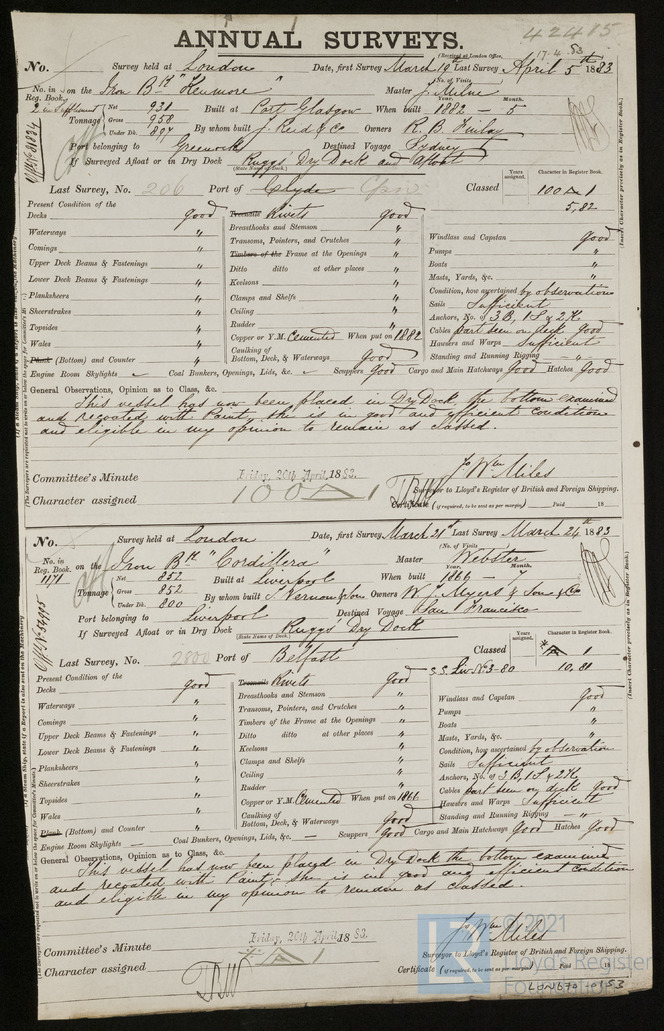 42415
ANNUAL SURVEYS.
(Received at London Office, 17.4.83
No. Survey held at London Date, first Survey March 19th Last Survey April 5th 1883
No. in Reg. Book. on the Iron Bk "Kenmore" (No. of Visits) Master J. Milne
2 in Supplement Year. Month.
Tonnage Net 931 Built at Port Glasgow When built 1882 - 5
Gross 958 By whom built J. Reid & Co Owners R. B. Finlay
Under Dk. 897
Port belonging to Greenock Destined Voyage Sydney
If Surveyed Afloat or in Dry Dock Ruggs Dry Dock and Afloat
(State Name of Dock.)
Last Survey, No. 206 Port of Clyde Classed Years assigned. Character in Register Book.
100 A 1
5,82
Present Condition of the
Decks good
Waterways "
Comings "
Upper Deck Beams & Fastenings "
Lower Deck Beams & Fastenings "
Planksheers "
Sheerstrakes "
Topsides "
Wales "
Plank (Bottom) and Counter "
Engine Room Skylights
Treenails Rivets good
Breasthooks and Stemson "
Transoms, Pointers, and Crutches "
Timbers of the Frame at the Openings "
Ditto ditto at other places "
Keelsons "
Clamps and Shelfs "
Ceiling "
Rudder "
Copper or Y.M. Cemented When put on 1882
Caulking of Bottom, Deck, & Waterways Good
Coal Bunkers, Openings, Lids, &c. Scuppers Good
Windlass and Capstan Good
Pumps "
Boats "
Masts, Yards, &c. "
Condition, how ascertained by observation
Sails Sufficient
Anchors, No. of 3 B, 1 S & 2 K
Cables part seen on deck Good
Hawsers and Warps Sufficient
Standing and Running Rigging - " -
Cargo and Main Hatchways Good Hatches Good
General Observations, Opinion as to Class, &c.
This vessel has now been placed in Dry Dock the bottom examined
and recoated with Paint, she is in good and efficient condition
and eligible in my opinion to remain as classed.
Jo Wm Miles
Surveyor to Lloyd's Register of British and Foreign Shipping.
Committee's Minute Friday, 20th April, 1883.
Character assigned 100 A 1
Certificate (if required, to be sent as per margin) Paid 18
No. Survey held at London Date, first Survey March 21st Last Survey March 24th 1883
No. in Reg. Book. on the Iron Bk "Cordillera" (No. of Visits) Master Webster
1171 Year. Month.
Tonnage Net 852 Built at Liverpool When built 1866 - 7
Gross 852 By whom built T. Vernon & Son Owners W. J. Myers & Sons & Co
Under Dk. 800
Port belonging to Liverpool Destined Voyage San Francisco
If Surveyed Afloat or in Dry Dock Ruggs Dry Dock
(State Name of Dock.)
Last Survey, No. 2800 Port of Belfast Classed Years assigned. Character in Register Book.
A 1
S.S. Liv. No 3-80 10,81
Present Condition of the
Decks good
Waterways "
Comings "
Upper Deck Beams & Fastenings "
Lower Deck Beams & Fastenings "
Planksheers "
Sheerstrakes "
Topsides "
Wales "
Plank (Bottom) and Counter "
Engine Room Skylights
Treenails Rivets Good
Breasthooks and Stemson "
Transoms, Pointers, and Crutches "
Timbers of the Frame at the Openings "
Ditto ditto at other places "
Keelsons "
Clamps and Shelfs "
Ceiling "
Rudder "
Copper or Y.M. Cemented When put on 1866
Caulking of Bottom, Deck, & Waterways Good
Coal Bunkers, Openings, Lids, &c. — Scuppers Good
Windlass and Capstan Good
Pumps "
Boats "
Masts, Yards, &c. "
Condition, how ascertained by observation
Sails Sufficient
Anchors, No. of 3 B, 1 S & 2 K
Cables part seen on deck Good
Hawsers and Warps Sufficient
Standing and Running Rigging - " -
Cargo and Main Hatchways Good Hatches Good
General Observations, Opinion as to Class, &c.
This vessel has now been placed in Dry Dock the bottom examined
and recoated with Paint, she is in good and efficient condition
and eligible in my opinion to remain as classed.
Jo Wm Miles
Surveyor to Lloyd's Register of British and Foreign Shipping.
Committee's Minute Friday, 20th April, 1883.
Character assigned A 1
Certificate (if required, to be sent as per margin) Paid 18
© 2021
Lloyd's Register
Foundation
LON670-0153
(Insert Character precisely as in Register Book.)
(Insert Character precisely as in Register Book.)